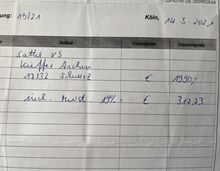 nung: 19/21 Köln, 14.5.2021
Artikel Einzelpreis Gesamtpreis
Sattel VS
Kieffer Aachen
17132 schwarz € 1990,-
incl. Mwst. 19% € 317,73